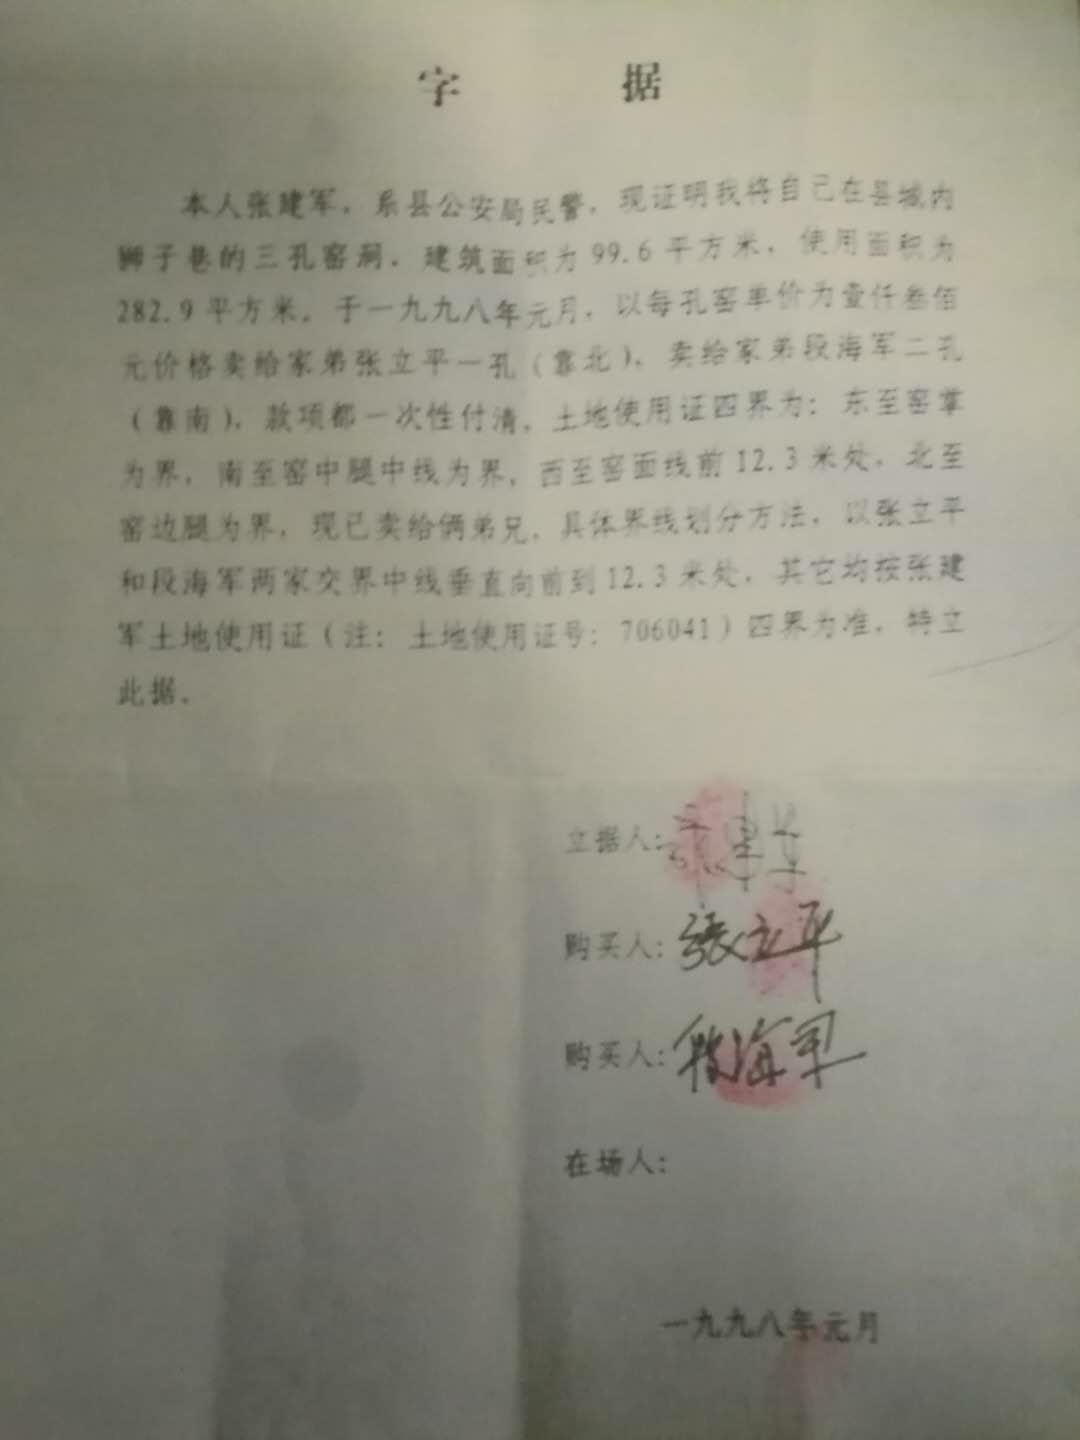 字 据
本人张建军，系县公安局民警，现证明我将自己在县城内
狮子巷的三孔窑洞，建筑面积为99.6平方米，使用面积为
282.9平方米，于一九九八年元月，以每孔窑单价为壹仟叁佰
元价格卖给家弟张立平一孔（靠北），卖给家弟段海军二孔
（靠南），款项都一次性付清，土地使用证四界为：东至窑掌
为界，南至窑中腿中线为界，西至窑面线前12.3米处，北至
窑边腿为界，现已卖给俩弟兄，具体界线划分方法，以张立平
和段海军两家交界中线垂直向前到12.3米处，其它均按张建
军土地使用证（注：土地使用证号：706041）四界为准，特立
此据。
立据人：张建军
购买人：张立平
购买人：段海军
在场人：
一九九八年元月